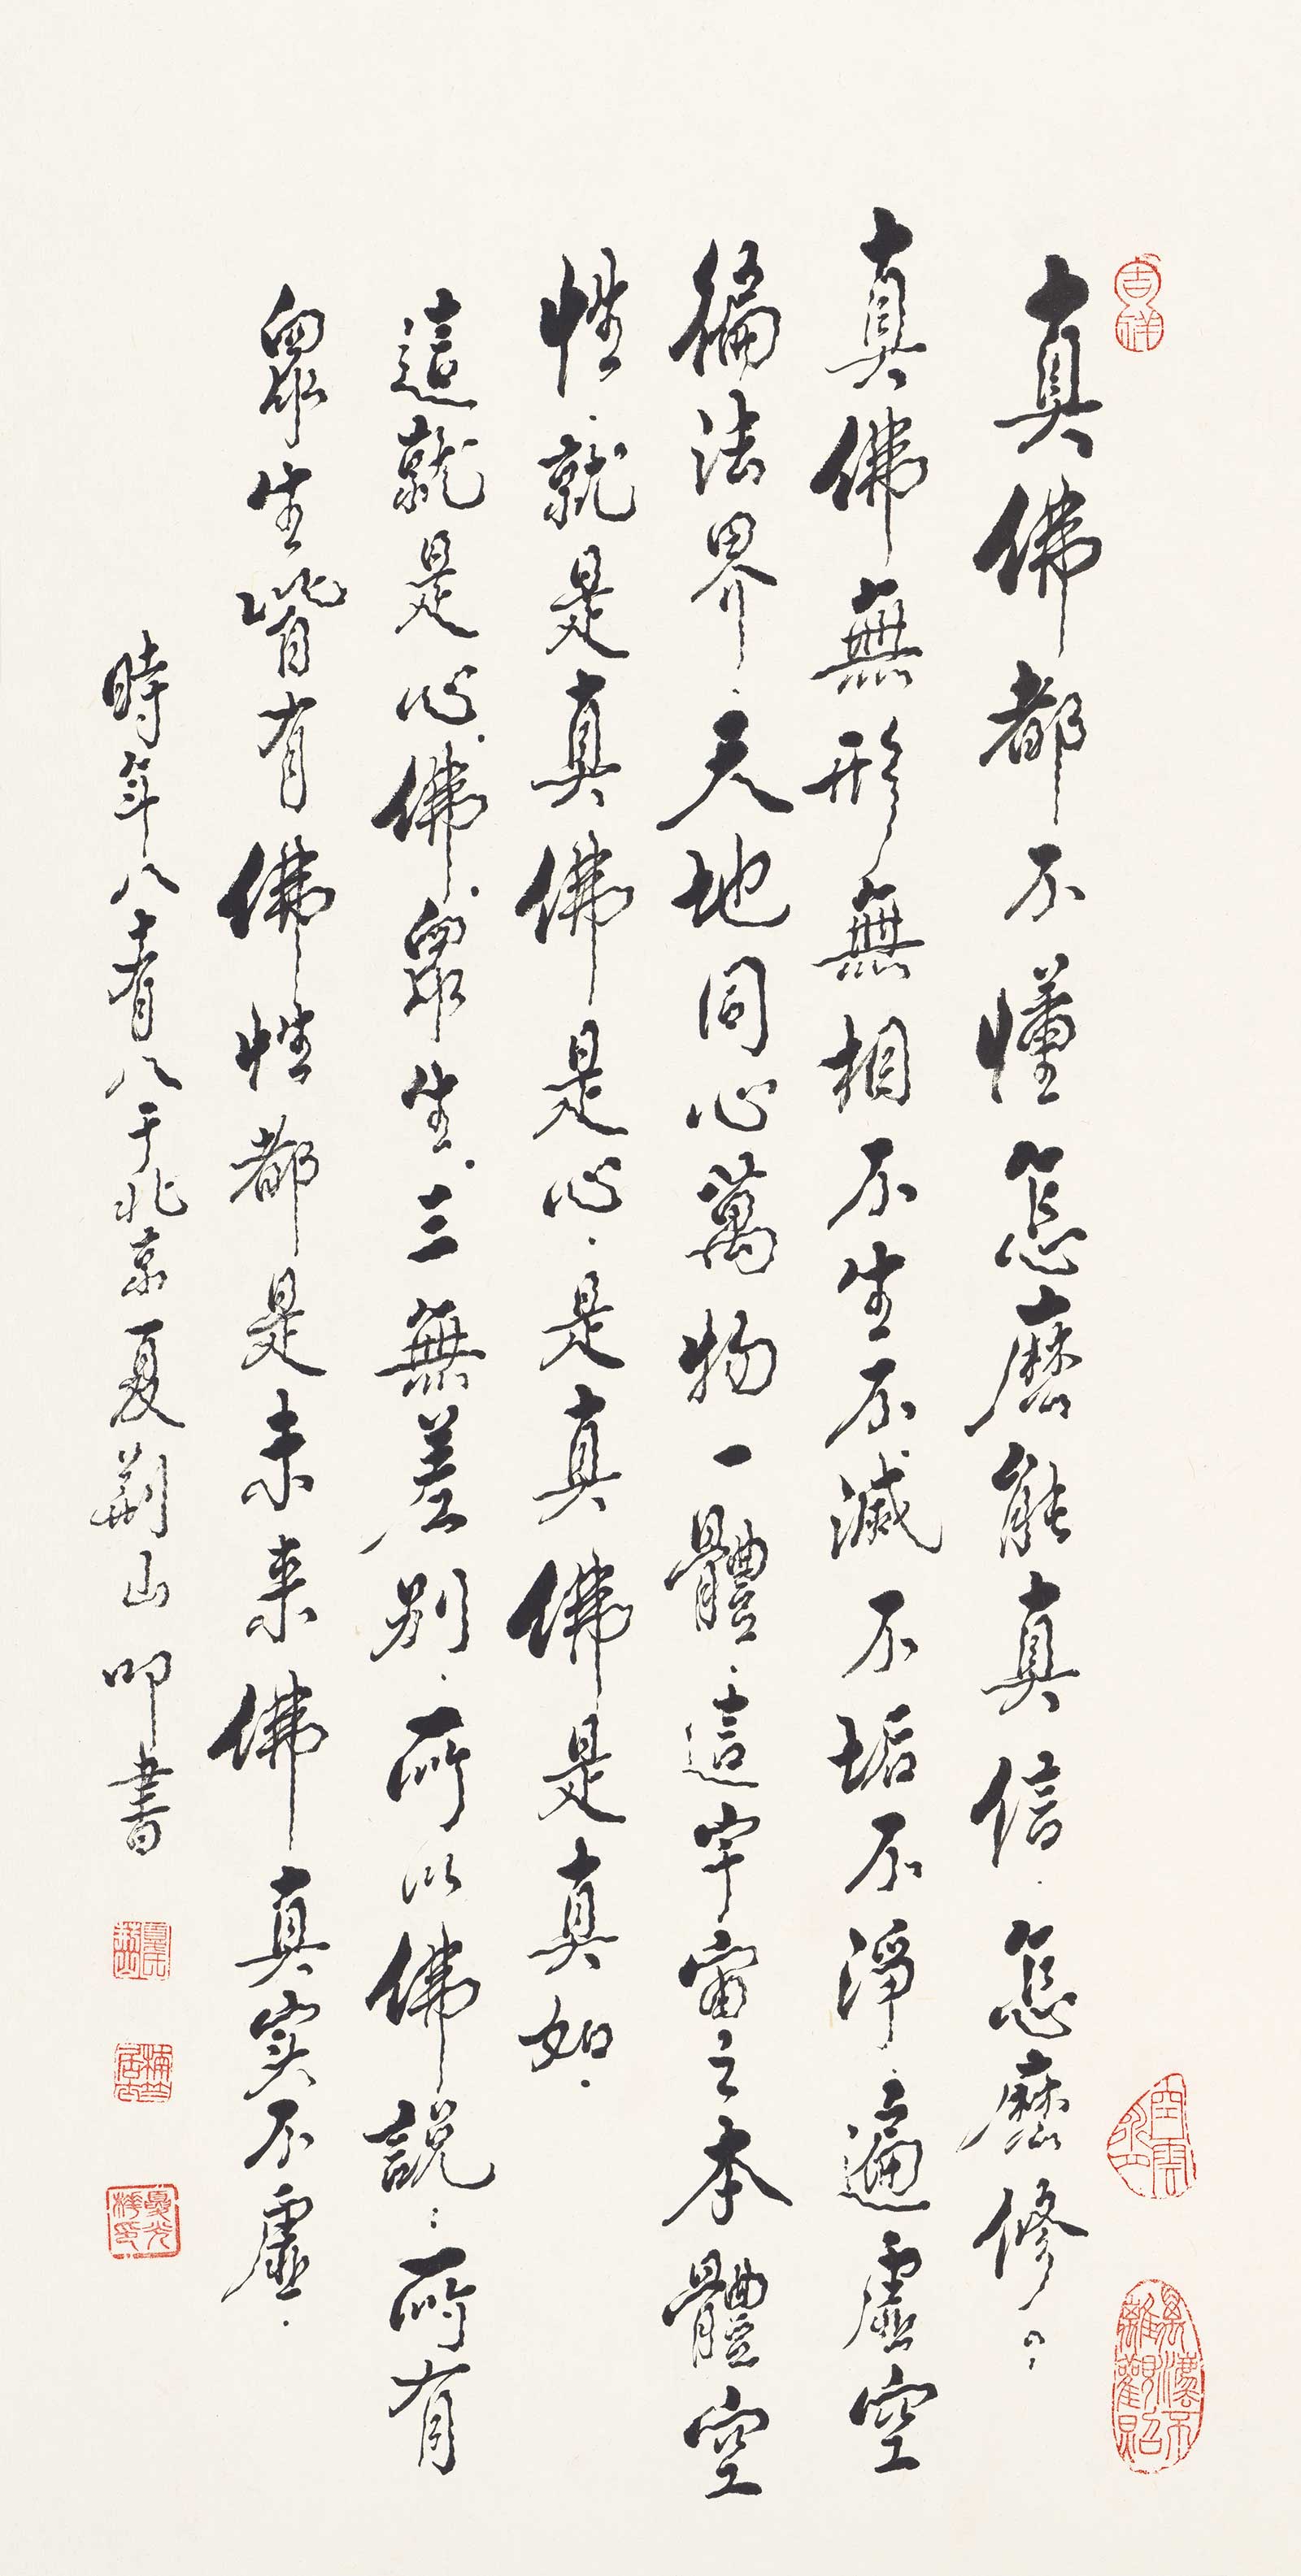 吉祥
真佛都不懂怎麼能真信．怎麼修？
真佛無形無相不生不滅不垢不淨．遍虛空
徧法界．天地同心萬物一體．這宇宙之本體空
性．就是真佛是心．是真佛是真如．
這就是心．佛．眾生．三無差別．所以佛說：所有
眾生皆有佛性都是未来佛真实不虛．
時年八十有八于北京夏荊山叩書